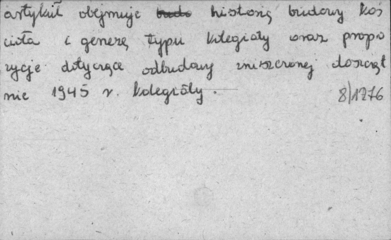 artykuł obejmuje historię budowy koś
cioła i genezę typu kolegiaty oraz propo
zycje dotyczące odbudowy zniszczonej doszczęt
nie 1945 r. kolegiaty.
8/1276